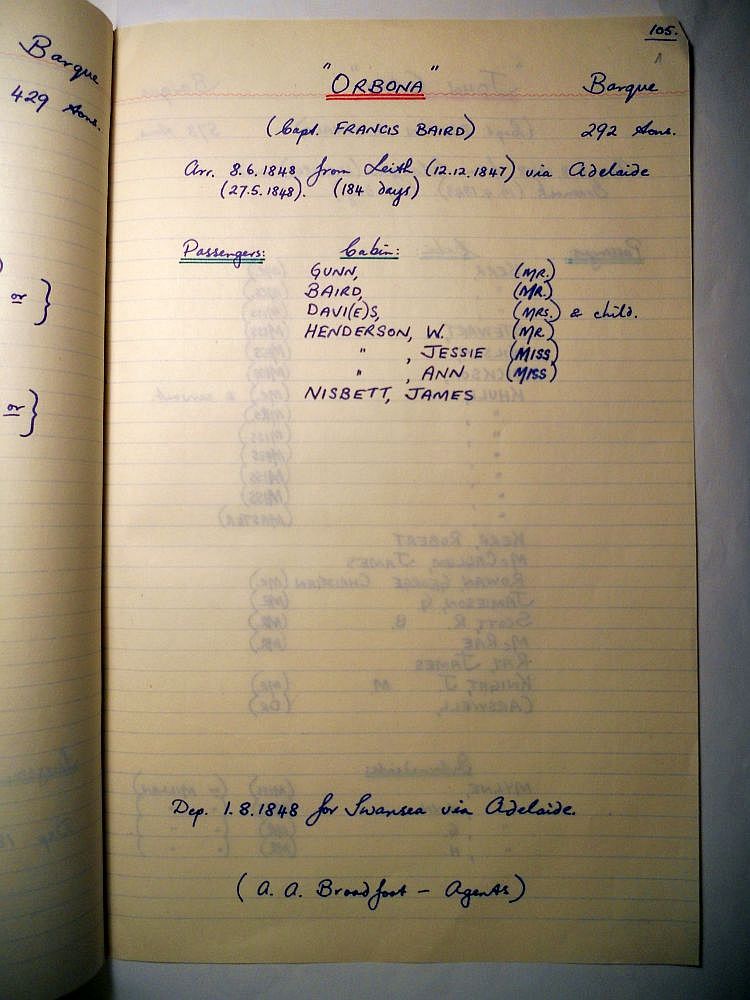 Barque
429 tons.
or }
or }
105.
"ORBONA" Barque
(Capt. FRANCIS BAIRD) 292 tons.
Arr. 8.6.1848 from Leith (12.12.1847) via Adelaide
(27.5.1848). (184 days)
Passengers: Cabin:
GUNN, (MR.)
BAIRD, (MR.)
DAVI(E)S, (MRS.) & child.
HENDERSON, W. (MR.)
" , JESSIE (MISS)
" , ANN (MISS)
NISBETT, JAMES
Dep. 1.8.1848 for Swansea via Adelaide.
(A. A. Broadfoot - Agents)